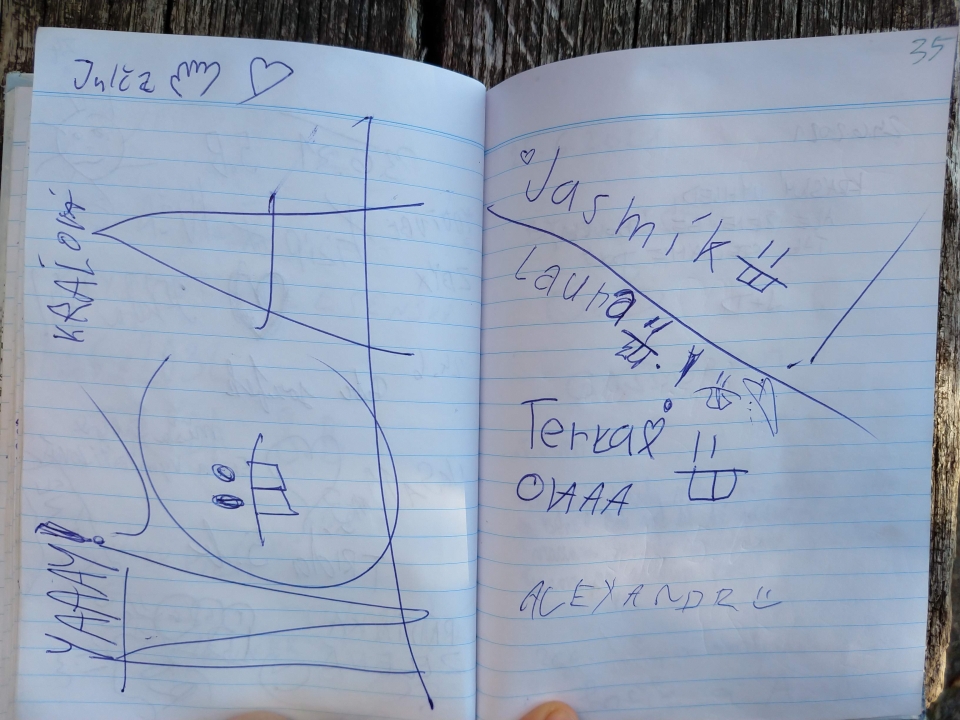 Julča
KRÁLOVÁ
YAAAY!
35
Jasmík
Laura
Terka
ALEXANDR